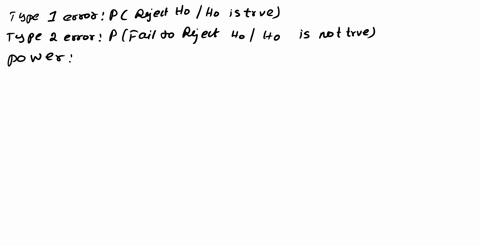 Type 1 error: P( Reject H0 / H0 is true)
Type 2 error: P (Fail to Reject H0 / H0 is not true)
power: